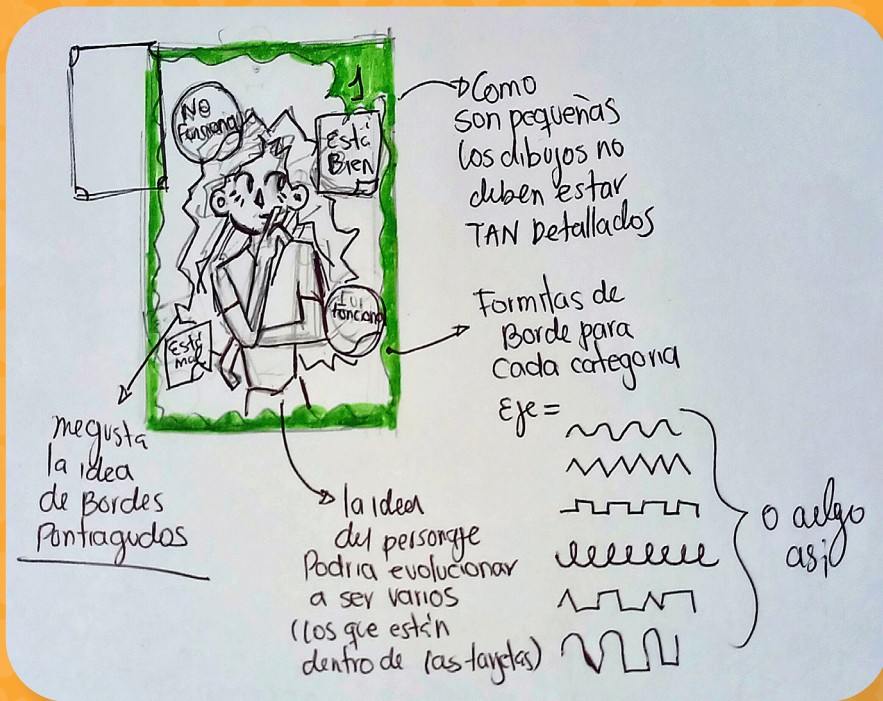 1
No
Funciona
Está
Bien
Está
mal
funciona
Como
son pequeñas
los dibujos no
deben estar
TAN Detallados
Formitas de
Borde para
Cada categoria
Eje=
o algo
así
me gusta
la idea
de Bordes
Pontiagudos
la idea
del personaje
Podria evolucionar
a ser varios
(los que están
dentro de las tarjetas)